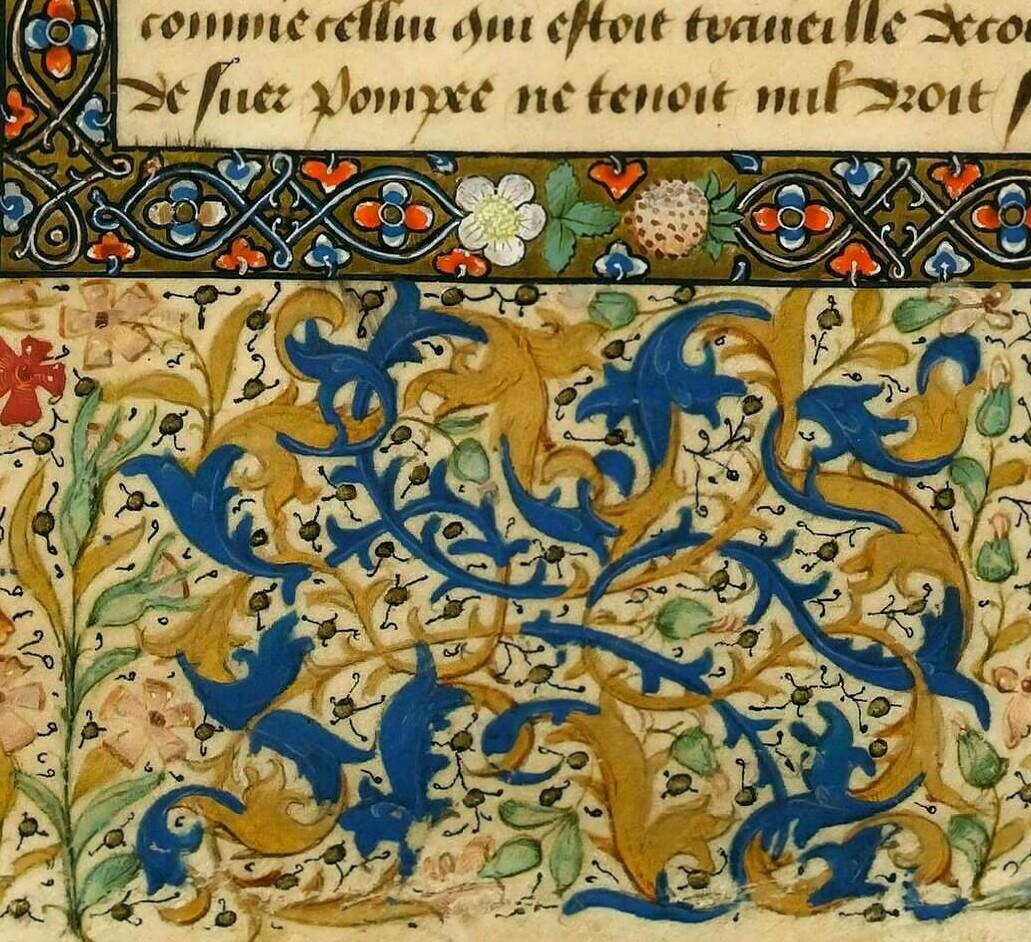 comme cellui qui estoit traueillé de co
de suer Pompee ne tenoit nul droit s